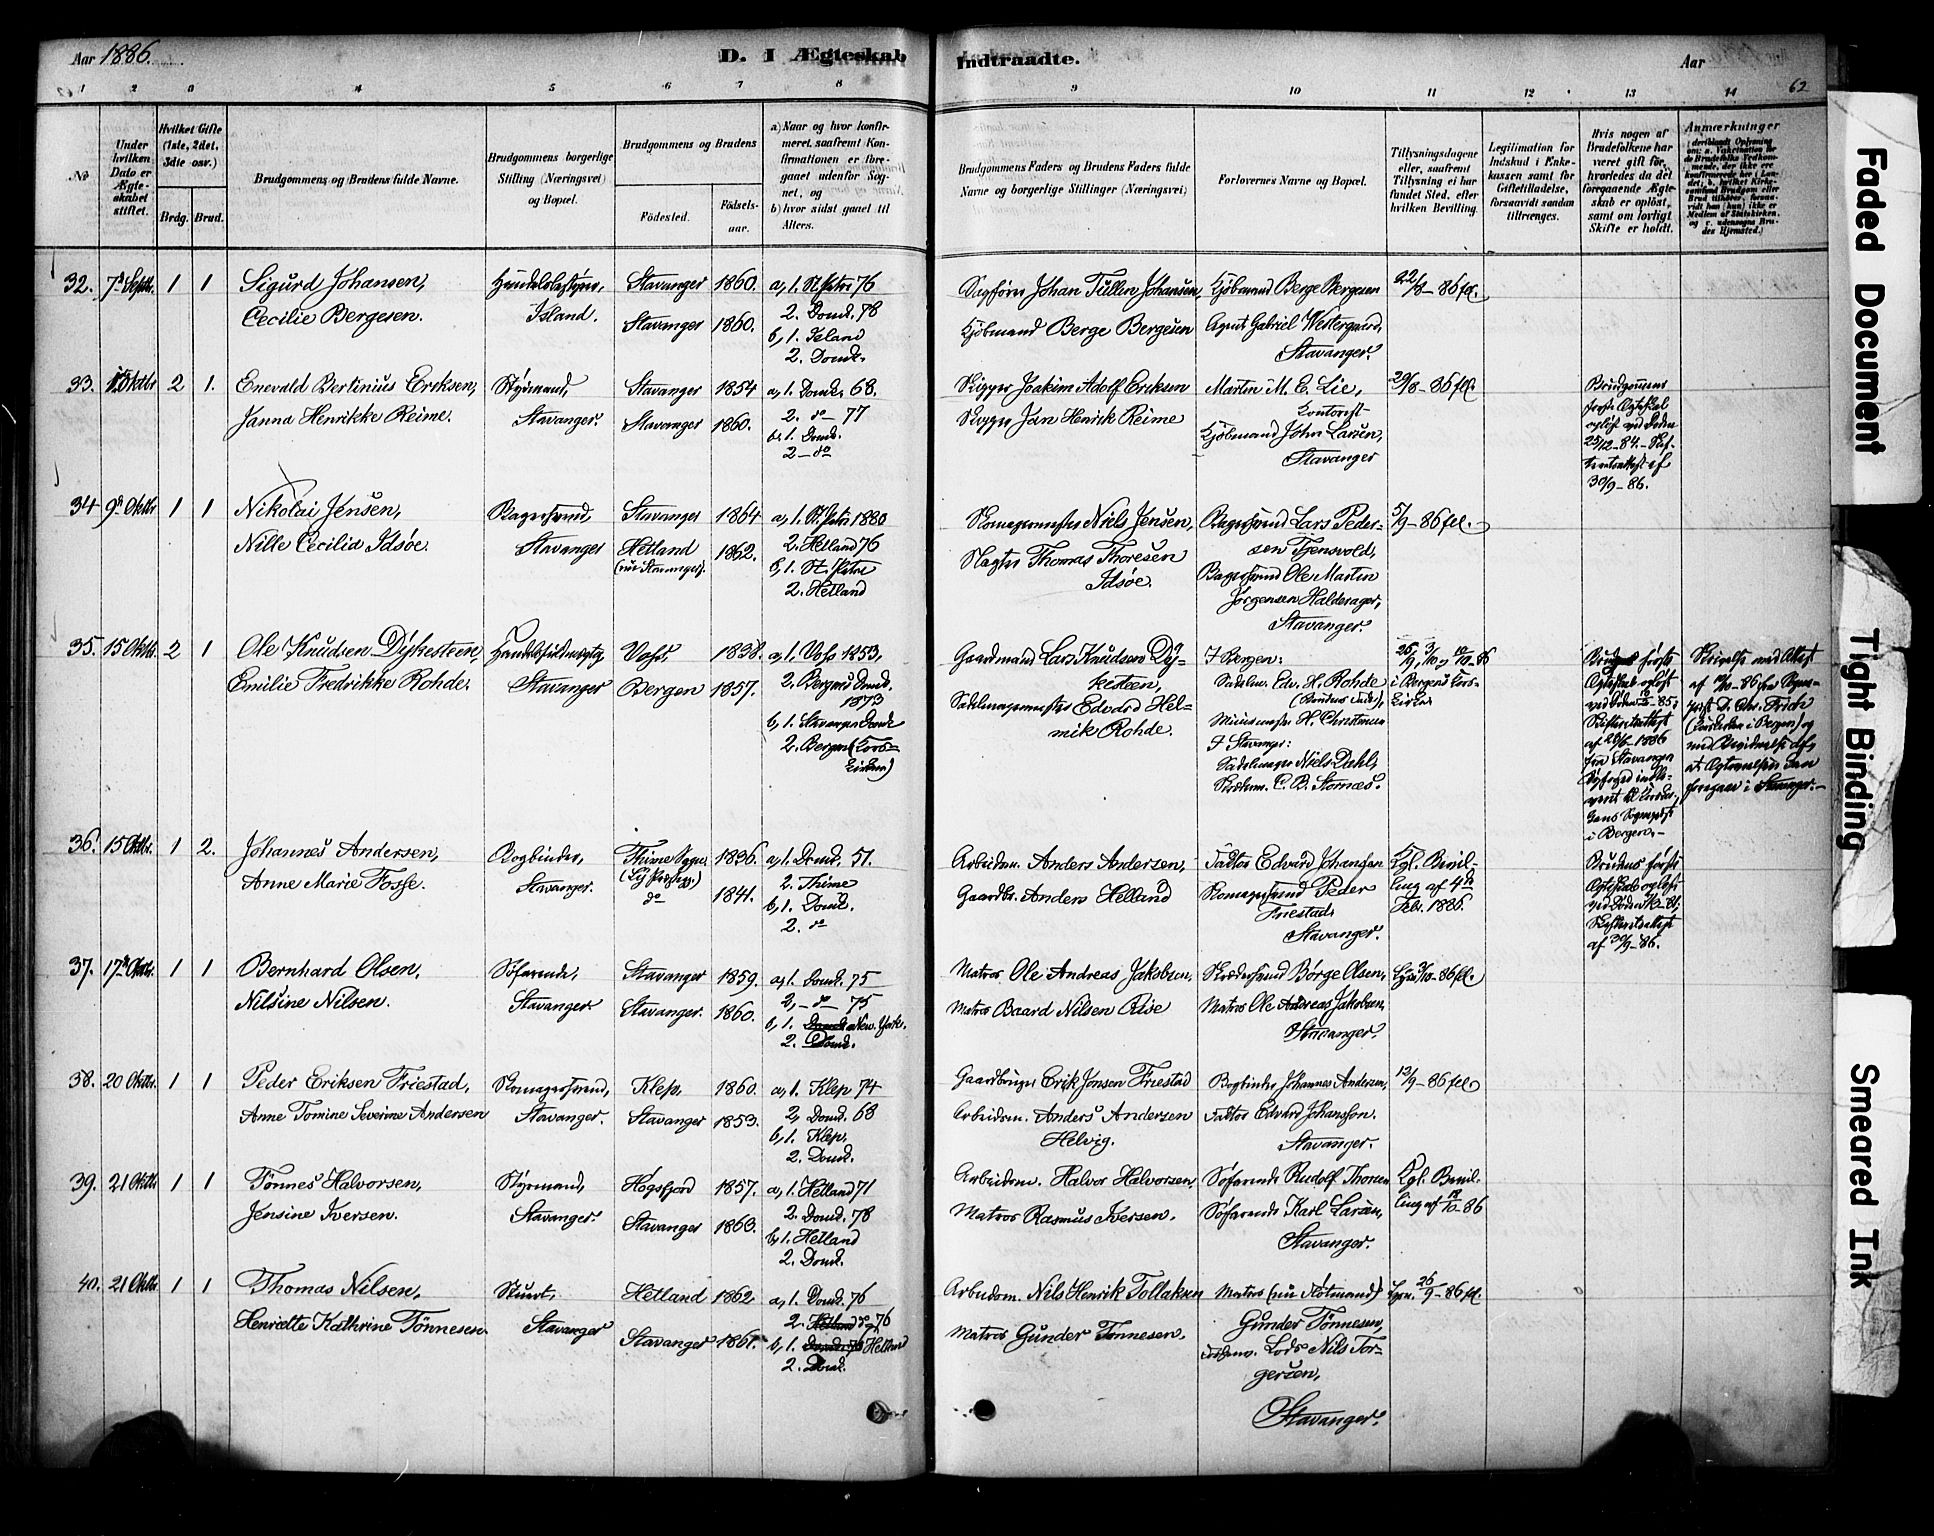 Aar 1886.
D. I Ægteskab Indtraadte.
Aar
62
1 2 3 4 5 6 7 8 9 10 11 12 13 14
No
Under hvilken Dato er Ægteskabet stiftet.
Hvilket Gifte (1ste, 2det, 3die osv.)
Brdg. Brud.
Brudgommens og Brudens fulde Navne.
Brudgommens borgerlige Stilling (Næringsvei) og Bopæl.
Brudgommens og Brudens
Födested.
Födselsaar.
a) Naar og hvor konfirmeret, saafremt Konfirmationen er foregaaet udenfor Sognet, og
b) hvor sidst gaaet til Alters.
Brudgommens Faders og Brudens Faders fulde Navne og borgerlige Stillinger (Næringsvei)
Forlovernes Navne og Bopæl.
Tillysningsdagene eller, saafremt Tillysning ei har fundet Sted, efter hvilken Bevilling.
Legitimation for Indskud i Enkekassen samt for Giftetilladelse, forsaavidt saadan tiltrænges.
Hvis nogen af Brudefolkene har været gift för, hvorledes da det foregaaende Ægteskab er oplöst, samt om lovligt Skifte er holdt.
Anmærkninger
32. 7d Septbr 1 1 Sigurd Johansen, Stavanger 1860. a, 1. St. Petri 76
Cecilie Bergesen. Island. Stavanger 1860. 2. Domk. 78
b, 1. Island
2. Domk.
Sagfører Johan Tullin Johansen, Kjøbmand Berge Bergesen 22/8-86 fl.
Kjøbmand Berge Bergesen Agent Gabriel Westergaard,
Stavanger.
33. Oktbr 2 1. Enevald Bertinius Eriksen, Styrmand, Stavanger 1854 a, 1. Domk. 68.
Janna Henrikke Reime. Stavanger. Stavanger 1860. 2. do - 77
b. 1. Domk.
2 - do
Skipper Joakim Adolf Eriksen Martin M. E. Lie, 29/8-86 fl.
Kontorist
Skipper Jan Henrik Reime Kjøbmand John Larsen,
Stavanger
Brudgommens
første Ægteskab
opløst ved Døden
25/12-84.
30/9-86.
34 9d Oktbr 1 1 Nikolai Jensen, Bagersvend, Stavanger 1864 a, 1. St. Petri 1880
Nille Cecilia Idsøe. Stavanger Hetland 1862. 2. Hetland 76
(nu Stavanger). b, 1. St. Petri
2. Hetland
Skomagermester Niels Jensen, Bagersvend Lars Pedersen Tjensvold, 5/9-86 fl.
Slagter Thomas Thoresen Idsøe. Bagersvend Ole Martin
Jørgensen Halderager,
Stavanger.
35. 15 Oktbr. 2 1 Ole Knudsen Dykesteen, Handelsfuldmægtig Voss, 1838. a, 1. Voss 1853,
Emilie Fredrikke Rohde. Stavanger Bergen 1857. 2. Bergens Domk. 1873
b, 1. Stavanger Domk
2. Bergen (Korskirken)
Gaardmand Lars Knudsen Dykesteen, I Bergen: 26/9, 3/10, 10/10-86
Sadelmagermester Edvard Helmik Rohde. Sadelm. Edv. H. Rohde i Bergens Korskirke
(Brudens Fader),
H. Christensen
I Stavanger:
Sadelmager Niels Dahl,
C. B. Stornæs.
første
Ægteskab opløst
ved Døden -85;
Skifteretsattest
af 20/6-1886
fra Stavanger
Byfoged
i Bergen.
Skrivelse med Attest
(Korskirken i Bergen) og
foregaar i Stavanger.
36. 15 Oktbr. 1 2. Johannes Andersen, Bogbinder, Thime Sogn 1836. a, 1. Domk. 51.
Anne Marie Fosse. Stavanger. do 1841. 2. Thime
b, 1. Domk.
2. do
Arbeidsm. Anders Andersen, Faktor Edvard Johanssen Kgl. Bevilling af 4de Febr. 1886.
Gaardbr. Anders Helland Skomagersvend Peder
Friestad,
Stavanger.
Brudens første
Ægteskab opløst
ved Døden
Skifteretsattest
af 30/9-86.
37. 17d Oktbr. 1 1 Bernhard Olsen, Søfarende, Stavanger 1859. a, 1. Domk. 75
Nilsine Nilsen. Stavanger. Stavanger. 1860. 2, - do 75
b, 1. New York.
2. Domk.
Matros Ole Andreas Jakobsen, Skræddersvend Børge Olsen, 3/10-86 fl.
Matros Baard Nilsen Rise Matros Ole Andreas Jakobsen,
Stavanger.
38. 20 Oktbr. 1 1 Peder Eriksen Friestad, Skomagersvend, Klep, 1860. a, 1. Klep 74
Anne Tomine Severine Andersen Stavanger. Stavanger 1853. 2, Domk. 68
b, 1. Klep.
2. Domk.
Gaardbruger Erik Jonsen Friestad Bogbinder Johannes Andersen, 12/9-86 fl.
Arbeidsm. Anders Andersen Helvig. Faktor Edvard Johanssen.
Stavanger.
39. 21 Oktbr 1 1 Tönnes Halvorsen, Styrmand, Høgsfjord 1857. a, 1. Hetland 71
Jensine Iversen. Stavanger. Stavanger 1863. 2. Domk. 78
b, 1. Hetland
2. Domk.
Arbeidsm. Halvor Halvorsen, Søfarende Rudolf Thorsen Kgl. Bevilling af 18/10-86
Matros Rasmus Iversen. Søfarende Karl Larsen,
Stavanger.
40. 21 Oktbr 1 1 Thomas Nilsen, Hetland 1862 a, 1. Domk. 76
Henriette Kathrine Tönnesen. Stavanger Stavanger 1861. 2. Hetland 76
b, 1. Hetland
2. Domk.
Arbeidsm. Nils Henrik Tollaksen Matros (nu Flötmand) 26/9-86 fl.
Matros Gunder Tönnesen. Gunder Tönnesen,
Lods Nils Torgersen,
Stavanger.
Faded Document
Tight Binding
Smeared Ink